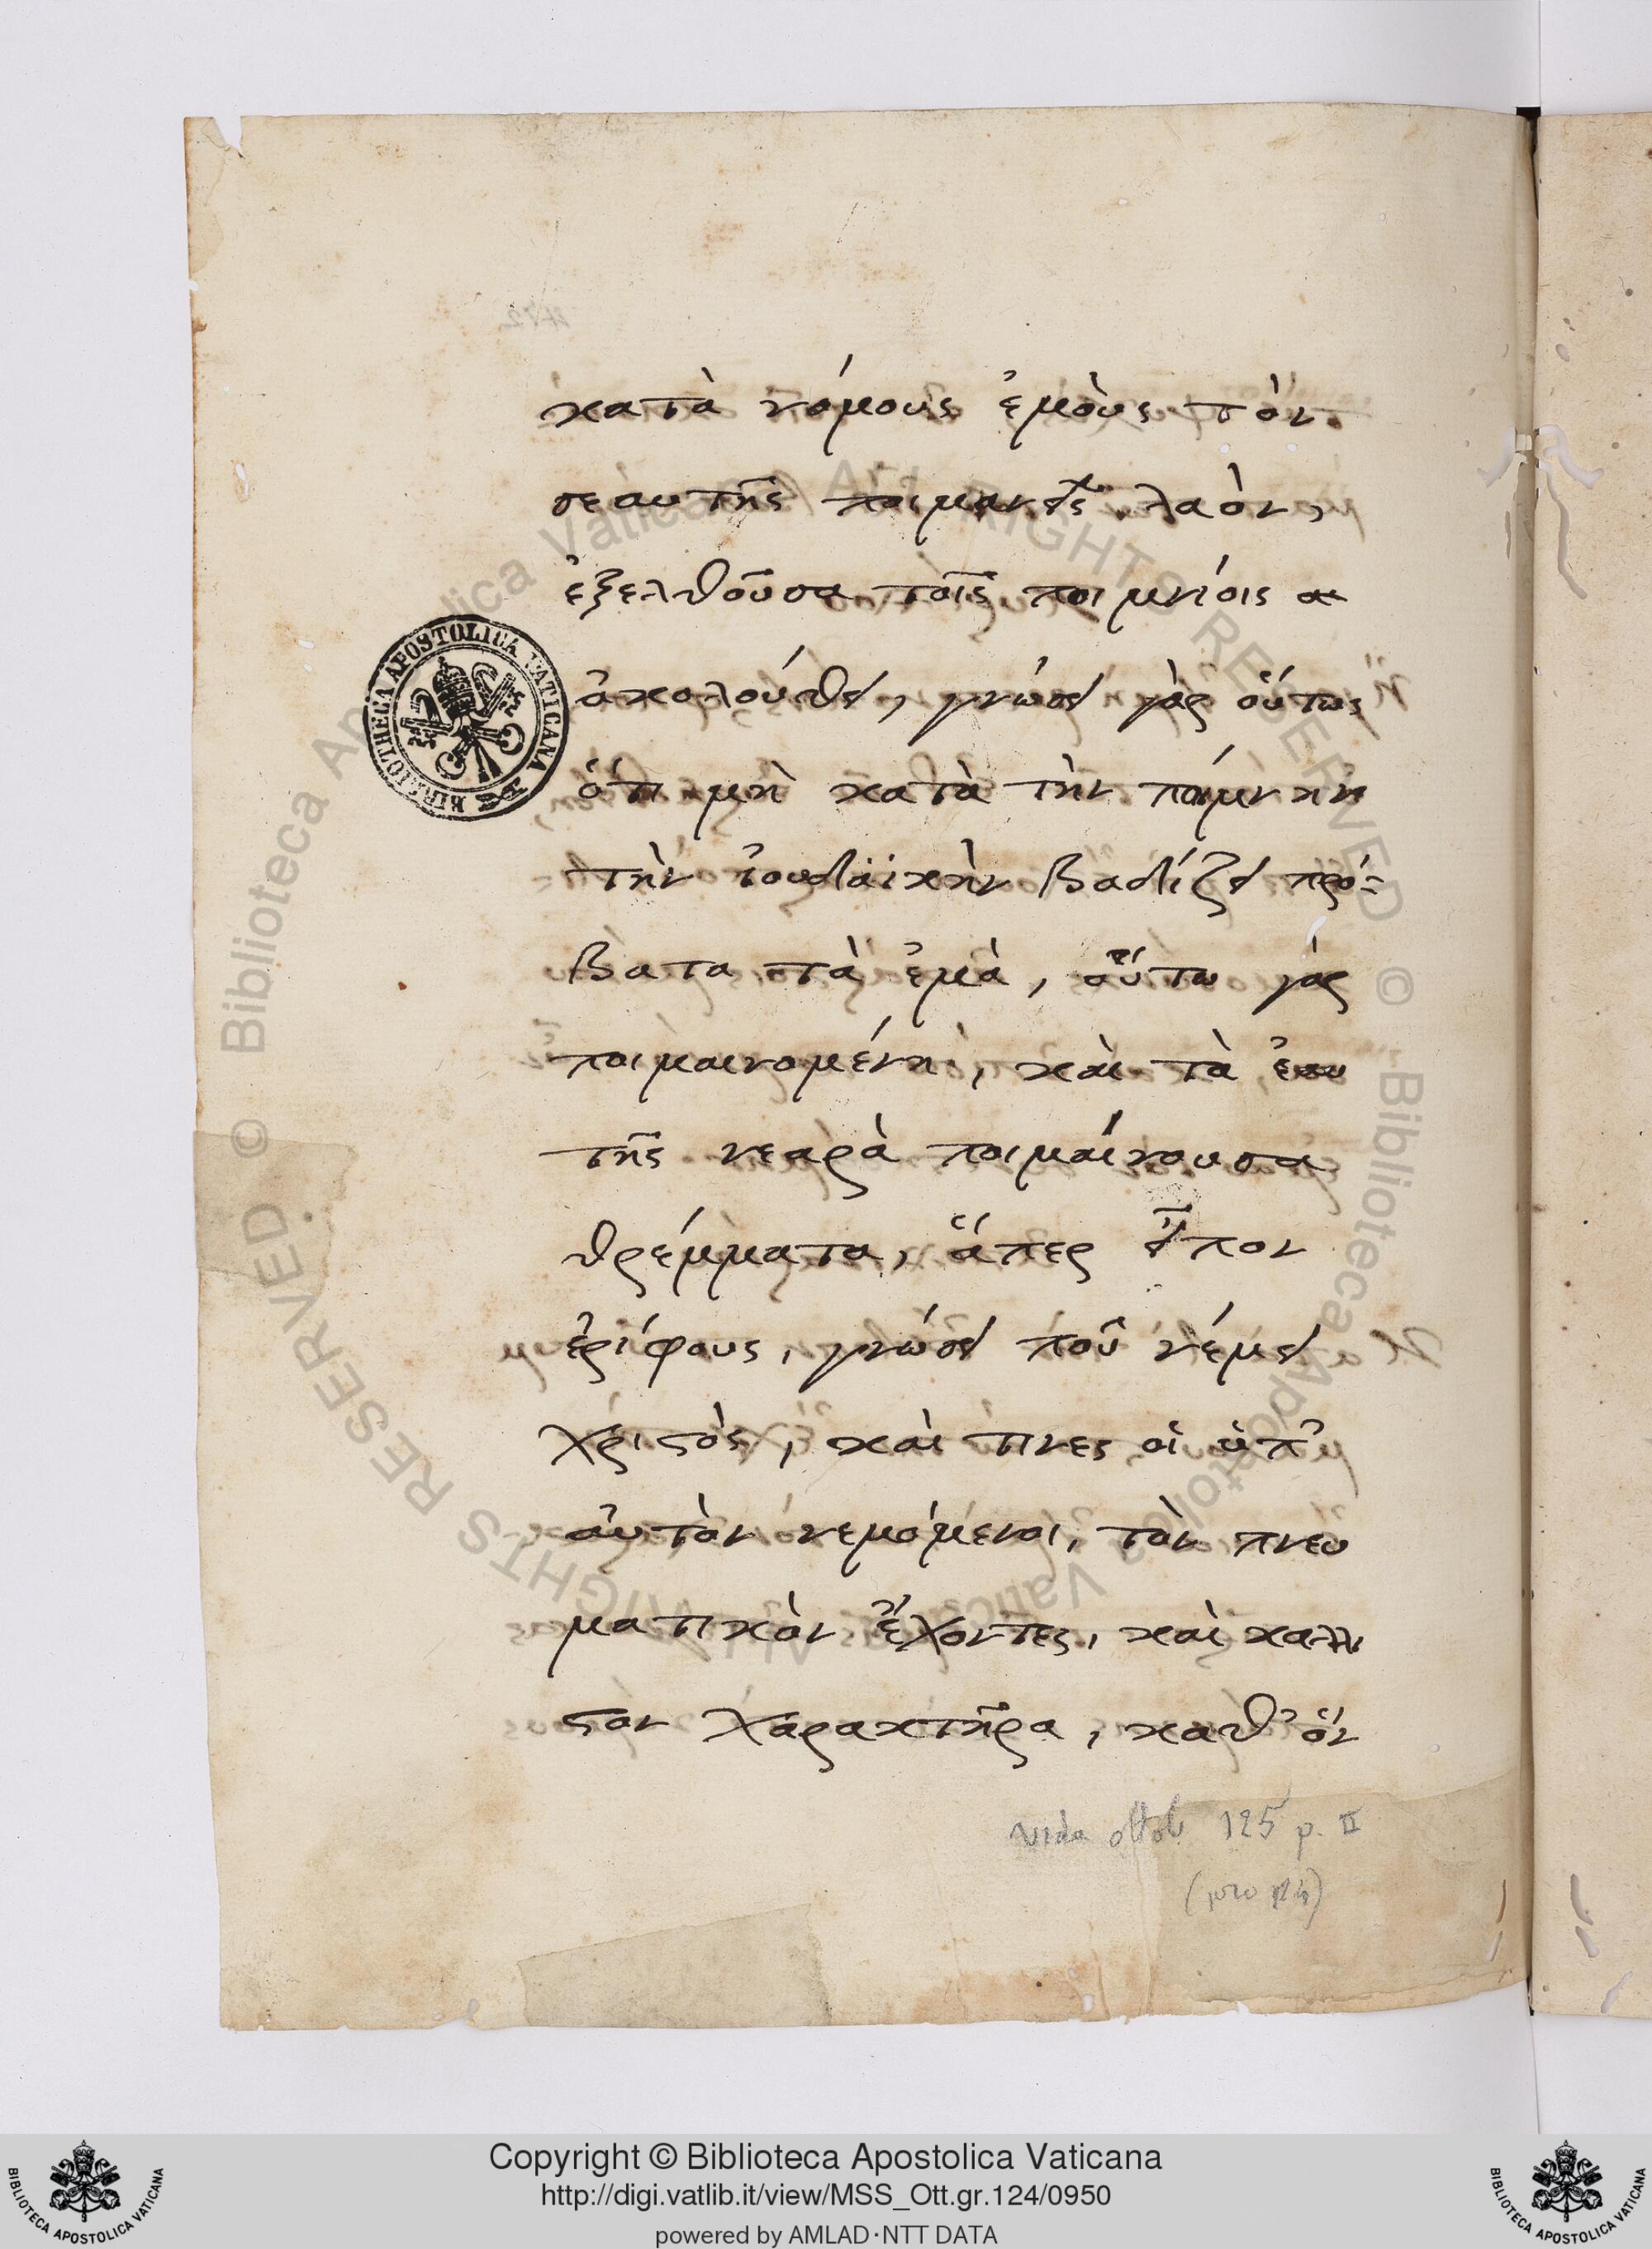 κατὰ νόμους ἐμοὺς τὸν
σεαυτῆς ποιμανεῖς λαὸν,
ἐξελθοῦσα τοῖς ποιμνίοις
ἀκολούθει, γνώσει γὰρ οὕτως
ὅτι μὴ κατὰ τὴν ποίμνην
τὴν ἰουδαϊκὴν βαδίζει πρό-
βατα τὰ ἐμὰ, οὕτω γὰρ
ποιμαινομένη, καὶ τὰ ἑαυ
τῆς νεαρὰ ποιμαίνουσα
θρέμματα, ἅπερ εἶπον
ἐρίφους, γνώσει ποῦ νέμει
χριστὸς, καὶ τινες οἱ ὑπ᾽
αὐτὸν νεμόμενοι, τὸν πνευ
ματικὸν ἔχοντες, καὶ καλλι
στον χαρακτῆρα, καθ᾽ ὃν
vide ottob 125 p. II
BIBLIOTHECA APOSTOLICA VATICANA
© Biblioteca Apostolica Vaticana ALL RIGHTS RESERVED
© Biblioteca Apostolica Vaticana ALL RIGHTS RESERVED
Copyright © Biblioteca Apostolica Vaticana
http://digi.vatlib.it/view/MSS_Ott.gr.124/0950
powered by AMLAD·NTT DATA
BIBLIOTECA APOSTOLICA VATICANA
BIBLIOTECA APOSTOLICA VATICANA